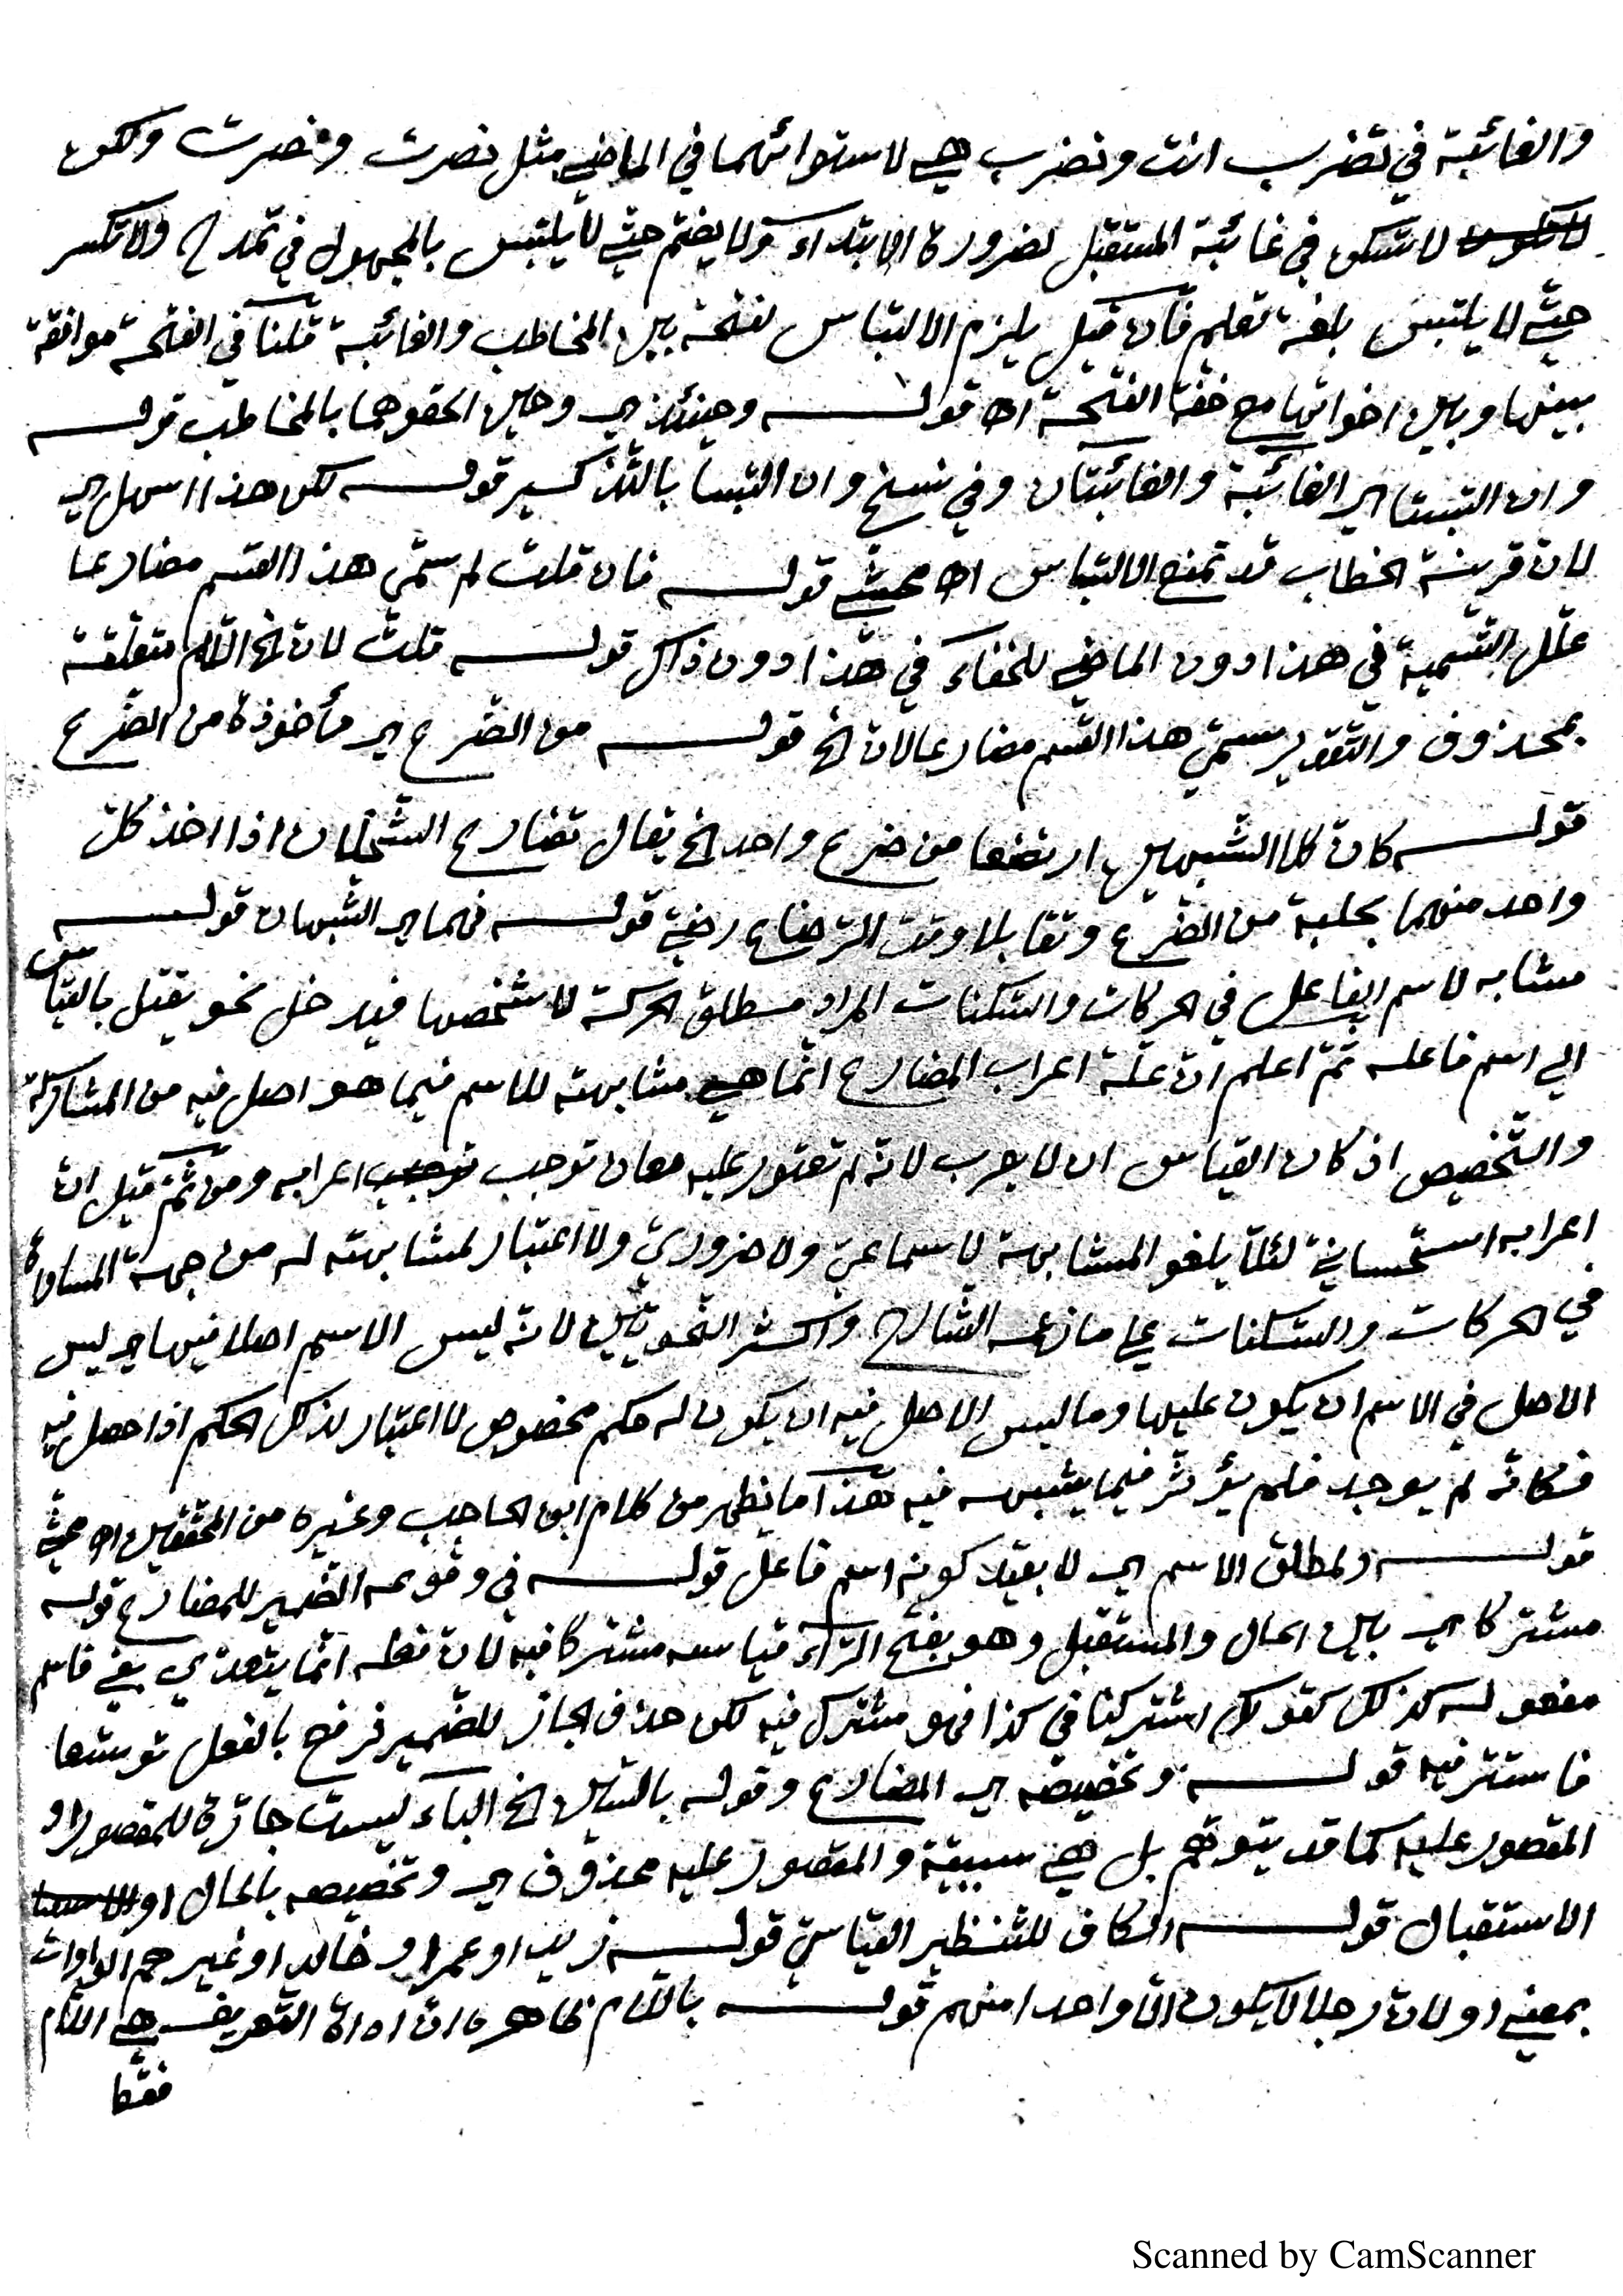 والغائبة في تضرب انت وتضرب هي لاستوائهما في الماضي مثل نصرت ونصرت ولكن
لا تسكن في غائبة المستقبل لضرورة الابتداء ولا يضم حتى لا يلتبس بالمجهول في تمدح ولا تكسر
حتى لا يلتبس بلغة تعلم فان قيل يلزم الالتباس لفتحة بين المخاطب والغائبة قلنا في الفتحة موافقة
بينها وبين اخواتها مع خفة الفتحة اه قوله وحينئذ اي وحين الحقوهما بالمخاطب قوله
وان التبستا اي الغائبة والغائبتان وفي نسخ وان التبسا بالتذكير قوله لكن هذا اسهل اي
لان قرينة الخطاب قد تمنع الالتباس اه محشي قوله فان قلت لم سمي هذا القسم مضارعا
علل التسمية في هذا دون الماضي للخفاء في هذا دون ذاك قوله قلت لان الخ اللام متعلقة
بمحذوف والتقدير سمي هذا القسم مضارعا لان الخ قوله من الضرع اي مأخوذة من الضرع
قوله كان كلا الشبهين ارتضعا من ضرع واحد الخ يقال تضارع السخلان اذا اخذ كل
واحد منهما بحلبة من الضرع وتقابلا وقت الرضاع رضي قوله فهما اي الشبهان قوله
مشابه لاسم الفاعل في الحركات والسكنات المراد مطلق الحركة لا شخصها فيدخل نحو يقتل بالقياس
الي اسم فاعله ثم اعلم ان علة اعراب المضارع انما هي مشابهته للاسم فيما هو اصل فيه من المشاركة
والتخصيص اذ كان القياس ان لا يعرب لانه لم تعتور عليه معان توجب اعرابه ومن ثم قيل ان
اعرابه استحساني لئلا يلغو المشابهة لا سماعي ولا ضروري ولا اعتبار لمشابهته له من جهة المساواة
في الحركات والسكنات على ما زعمه الشارح واكثر النحويين لانه ليس الاسم اصلا فيها اي ليس
الاصل في الاسم ان يكون عليها وما ليس الاصل فيه ان يكون له حكم مخصوص لا اعتبار لذلك الحكم اذا حصل فيه
فكانه لم يوجد فلم يؤثر فيما يشبهه فيه هذا ما يظهر من كلام ابن الحاجب وغيره من المحققين اه محشي
قوله ولمطلق الاسم اي لا بقيد كونه اسم فاعل قوله في وقوعه الضمير للمضارع قوله
مشتركا اي بين الحال والمستقبل وهو بفتح الراء قياسه مشتركا فيه لان فعله انما يتعدي بفي فاسم
مفعوله كذلك كقولك اشتركنا في كذا فهو مشترك فيه لكن حذف الجار للضمير فرفع بالفعل توسعا
فاستتر فيه قوله وتخصيصه اي المضارع وقوله بالسين الخ الباء ليست جارة للمقصور او
المقصور عليه كما قد يتوهم بل هي سببية والمقصور عليه محذوف اي وتخصيصه بالحال او
الاستقبال قوله الكاف للتنظير القياسي قوله زيد او عمرا او خالد او غيرهم الواوات
بمعني او لان رجلا لا يكون الا واحدا منهم قوله باللام ظاهره ان اداة التعريف هي اللام
فقط
Scanned by CamScanner